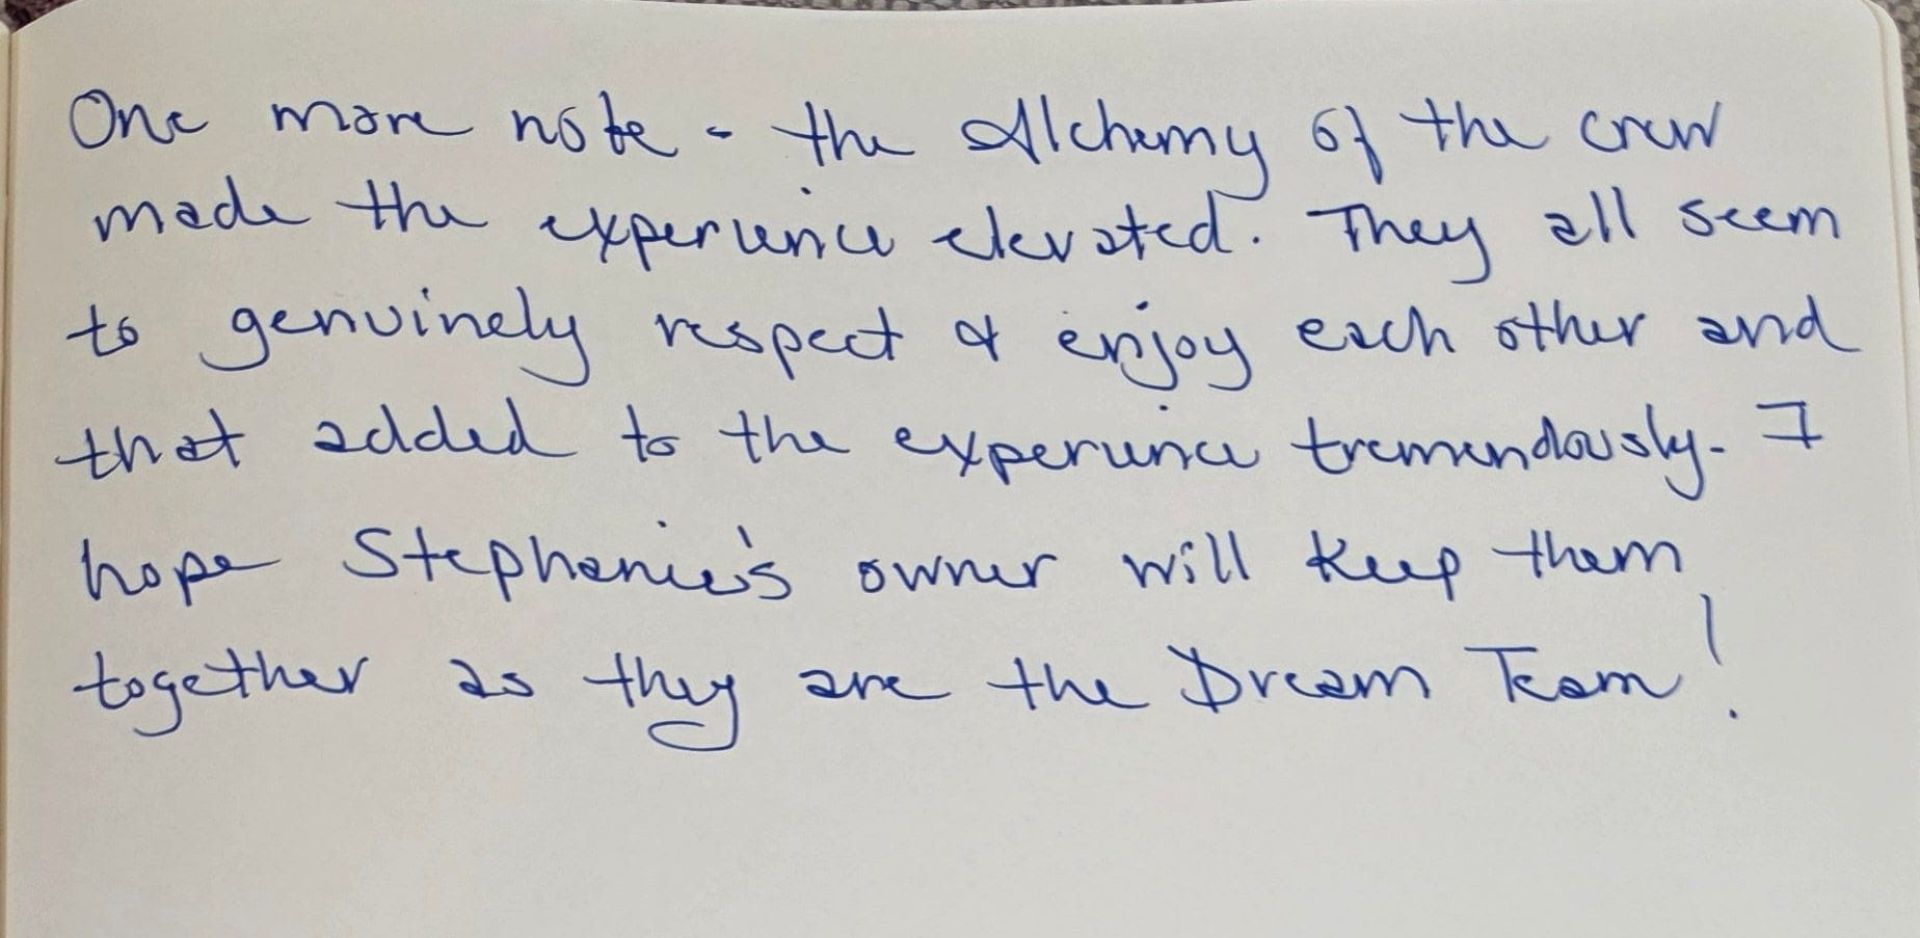 One more note - the Alchemy of the crew
made the experience elevated. They all seem
to genuinely respect & enjoy each other and
that added to the experience tremendously. I
hope Stephanie's owner will keep them
together as they are the Dream Team!